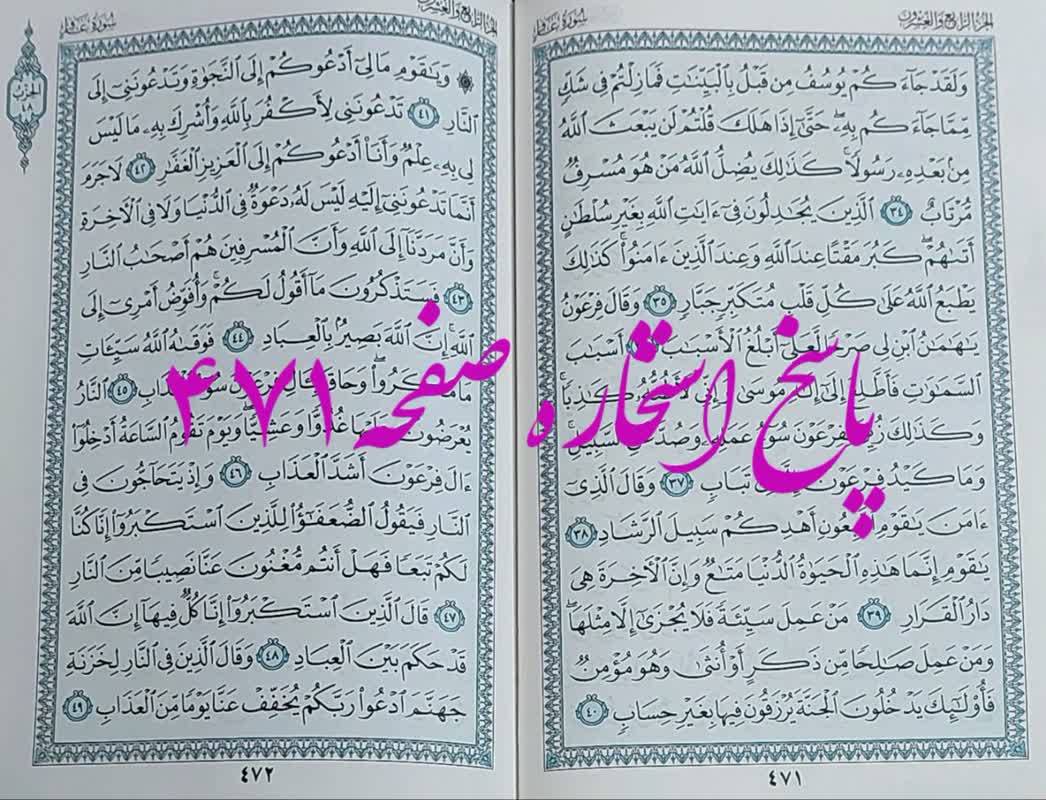 الجزء الرابع والعشرون
سورة غافر
وَلَقَدْ جَآءَكُمْ يُوسُفُ مِن قَبْلُ بِٱلْبَيِّنَٰتِ فَمَازِلْتُمْ فِى شَكٍّ
مِّمَّا جَآءَكُم بِهِۦ حَتَّىٰٓ إِذَا هَلَكَ قُلْتُمْ لَن يَبْعَثَ ٱللَّهُ
مِنۢ بَعْدِهِۦ رَسُولًا كَذَٰلِكَ يُضِلُّ ٱللَّهُ مَنْ هُوَ مُسْرِفٌ
مُّرْتَابٌ ٣٤ ٱلَّذِينَ يُجَٰدِلُونَ فِىٓ ءَايَٰتِ ٱللَّهِ بِغَيْرِ سُلْطَٰنٍ
أَتَىٰهُمْ كَبُرَ مَقْتًا عِندَ ٱللَّهِ وَعِندَ ٱلَّذِينَ ءَامَنُوا۟ كَذَٰلِكَ
يَطْبَعُ ٱللَّهُ عَلَىٰ كُلِّ قَلْبِ مُتَكَبِّرٍ جَبَّارٍ ٣٥ وَقَالَ فِرْعَوْنُ
يَٰهَٰمَٰنُ ٱبْنِ لِى صَرْحًا لَّعَلِّىٓ أَبْلُغُ ٱلْأَسْبَٰبَ أَسْبَٰبَ
ٱلسَّمَٰوَٰتِ فَأَطَّلِعَ إِلَىٰٓ إِلَٰهِ مُوسَىٰ وَإِنِّى لَأَظُنُّهُۥ كَٰذِبًا
وَكَذَٰلِكَ زُيِّنَ لِفِرْعَوْنَ سُوٓءُ عَمَلِهِۦ وَصُدَّ عَنِ ٱلسَّبِيلِ
وَمَا كَيْدُ فِرْعَوْنَ إِلَّا فِى تَبَابٍ ٣٧ وَقَالَ ٱلَّذِىٓ
ءَامَنَ يَٰقَوْمِ ٱتَّبِعُونِ أَهْدِكُمْ سَبِيلَ ٱلرَّشَادِ ٣٨
يَٰقَوْمِ إِنَّمَا هَٰذِهِ ٱلْحَيَوٰةُ ٱلدُّنْيَا مَتَٰعٌ وَإِنَّ ٱلْءَاخِرَةَ هِىَ
دَارُ ٱلْقَرَارِ ٣٩ مَنْ عَمِلَ سَيِّئَةً فَلَا يُجْزَىٰٓ إِلَّا مِثْلَهَا
وَمَنْ عَمِلَ صَٰلِحًا مِّن ذَكَرٍ أَوْ أُنثَىٰ وَهُوَ مُؤْمِنٌ
فَأُو۟لَٰٓئِكَ يَدْخُلُونَ ٱلْجَنَّةَ يُرْزَقُونَ فِيهَا بِغَيْرِ حِسَابٍ ٤٠
٤٧١
پاسخ استخاره صفحه ۴۷۱
الجزء الرابع والعشرون
سورة غافر
الحزب ٤٨
وَيَٰقَوْمِ مَا لِىٓ أَدْعُوكُمْ إِلَى ٱلنَّجَوٰةِ وَتَدْعُونَنِىٓ إِلَى
ٱلنَّارِ ٤١ تَدْعُونَنِى لِأَكْفُرَ بِٱللَّهِ وَأُشْرِكَ بِهِۦ مَا لَيْسَ
لِى بِهِۦ عِلْمٌ وَأَنَا۠ أَدْعُوكُمْ إِلَى ٱلْعَزِيزِ ٱلْغَفَّٰرِ ٤٢ لَا جَرَمَ
أَنَّمَا تَدْعُونَنِىٓ إِلَيْهِ لَيْسَ لَهُۥ دَعْوَةٌ فِى ٱلدُّنْيَا وَلَا فِى ٱلْءَاخِرَةِ
وَأَنَّ مَرَدَّنَآ إِلَى ٱللَّهِ وَأَنَّ ٱلْمُسْرِفِينَ هُمْ أَصْحَٰبُ ٱلنَّارِ
٤٣ فَسَتَذْكُرُونَ مَآ أَقُولُ لَكُمْ وَأُفَوِّضُ أَمْرِىٓ إِلَى
ٱللَّهِ إِنَّ ٱللَّهَ بَصِيرٌۢ بِٱلْعِبَادِ ٤٤ فَوَقَىٰهُ ٱللَّهُ سَيِّـَٔاتِ
مَا مَكَرُوا۟ وَحَاقَ بِـَٔالِ فِرْعَوْنَ سُوٓءُ ٱلْعَذَابِ ٤٥ ٱلنَّارُ
يُعْرَضُونَ عَلَيْهَا غُدُوًّا وَعَشِيًّا وَيَوْمَ تَقُومُ ٱلسَّاعَةُ أَدْخِلُوٓا۟
ءَالَ فِرْعَوْنَ أَشَدَّ ٱلْعَذَابِ ٤٦ وَإِذْ يَتَحَآجُّونَ فِى
ٱلنَّارِ فَيَقُولُ ٱلضُّعَفَٰٓؤُا۟ لِلَّذِينَ ٱسْتَكْبَرُوٓا۟ إِنَّا كُنَّا
لَكُمْ تَبَعًا فَهَلْ أَنتُم مُّغْنُونَ عَنَّا نَصِيبًا مِّنَ ٱلنَّارِ
٤٧ قَالَ ٱلَّذِينَ ٱسْتَكْبَرُوٓا۟ إِنَّا كُلٌّ فِيهَآ إِنَّ ٱللَّهَ
قَدْ حَكَمَ بَيْنَ ٱلْعِبَادِ ٤٨ وَقَالَ ٱلَّذِينَ فِى ٱلنَّارِ لِخَزَنَةِ
جَهَنَّمَ ٱدْعُوا۟ رَبَّكُمْ يُخَفِّفْ عَنَّا يَوْمًا مِّنَ ٱلْعَذَابِ ٤٩
٤٧٢